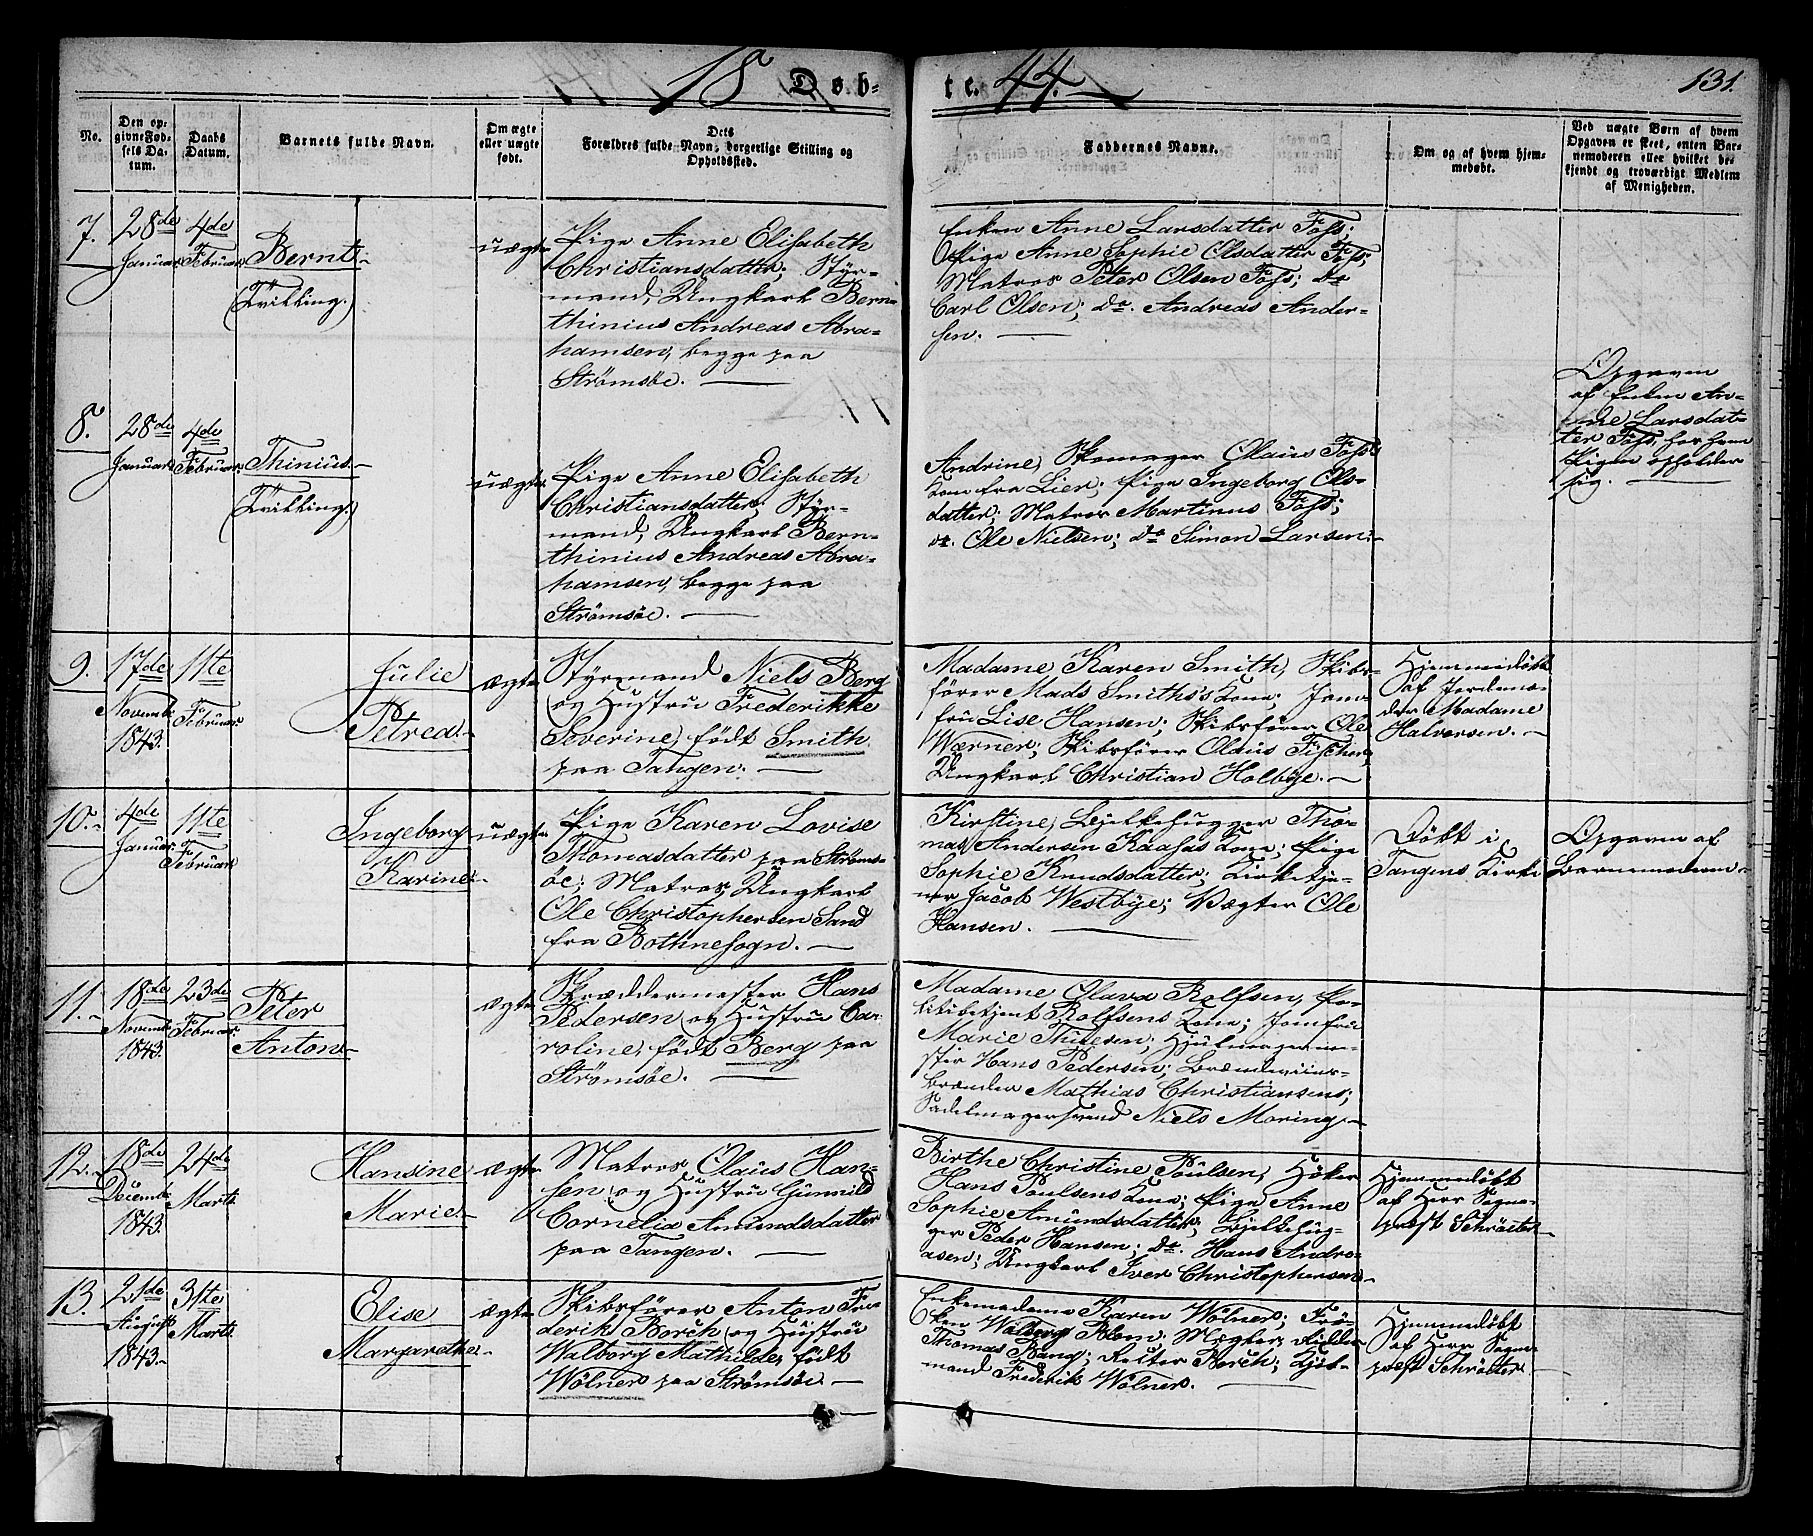 18 Døb-
te. 44.
131.
No.
Den op-
givne Fød-
sels Da-
tum.
Daabs
Datum.
Barnets fulde Navn.
Om ægte
eller uægte
født.
Dets
Forældres fulde Navn, borgerlige Stilling og
Opholdssted.
Faddernes Navne.
Om og af hvem hjem-
medøbt.
Ved uægte Børn af hvem
Opgaven er skeet, enten Bar-
nemoderen eller hvilket be-
kjendt og troværdigt Medlem
af Menigheden.
7.
28de
Januar
4de
Februar
Bernt.
(Tvilling.)
uægte
Pige Anne Elisabeth
Christiansdatter; Styr-
mand, Ungkarl Bern-
thinius Andreas Abra-
hamsen, begge paa
Strømsøe.
Enken Anne Larsdatter Foss;
Pige Anne Sophie Olsdatter Foss;
Matros Peter Olsen Foss; do
Carl Olsen; do. Andreas Ander-
sen.
8.
28de
Januar
4de
Februar
Thinius.
(Tvilling.)
uægte
Pige Anne Elisabeth
Christiansdatter; Styr-
mand, Ungkarl Bern-
thinius Andreas Abra-
hamsen, begge paa
Strømsøe.
Andrine, Skomager Olaus Foss
Kone fra Lier; Pige Ingeborg Ols-
datter; Matros Martinus Foss;
do. Ole Nielsen; do Simon Larsen.
Opgaven
af Enken An-
ne Larsdat-
ter Foss, hos hvem
Pigen opholder
sig.
9.
17de
Novemb.
1843.
11te
Februar
Julie
Petrea.
ægte
Styrmand Niels Berg
og Hustru Frederikke
Severine, født Smith
paa Tangen.
Madame Karen Smith, Skibs-
fører Mads Smiths's Kone; Jom-
fru Lise Hansen; Skibsfører Ole
Wærner; Skibsfører Olaus Fischer;
Ungkarl Christian Holbye.
Hjemmedøbt
af Jordemo-
der Madame
Halvorsen.
10.
4de
Januar
11te
Februar
Ingeborg
Karine.
uægte
Pige Karen Lovise
Thomasdatter paa Strøms-
øe; Matros, Ungkarl
Ole Christophersen Sand
fra Bothnesogn.
Kirstine, Bjelkehugger Tho-
mas Andersen Kaasas Kone; Pige
Sophie Knudsdatter; Kirketje-
ner Jacob Westbye; Vægter Ole
Hansen.
Døbt i
Tangens Kirke
Opgaven af
Barnemoderen.
11.
18de
Novemb.
1843.
23de
Februar
Peter
Anton.
ægte
Skræddermester Hans
Pedersen og Hustru Ca-
roline, født Berg paa
Strømsøe.
Madame Olava Rolfsen, Po-
litibetjent Rolfsens Kone; Jomfru
Marie Thuesen; Hjulmagerme-
ster Hans Pedersen; Brændeviins-
brænder Mathias Christiansens;
Sadelmagersvend Niels Moring.
12.
18de
Decemb.
1843.
24de
Marts
Hansine
Marie.
ægte
Matros Olaus Han-
sen og Hustru Gunnild
Cornelia Amundsdatter
paa Tangen.
Birthe Christine Poulsen, Høker
Hans Poulsens Kone; Pige Anne
Sophie Amundsdatter; Bjelkehug-
ger Peder Hansen; do. Hans Andre-
asen; Ungkarl Iver Christophersen.
Hjemmedøbt
af Herr Sogne-
præst Schrøeter.
13.
21de
August
1843.
31te
Marts
Elise
Margarethe.
ægte
Skibsfører Anton Fre-
derik Borch og Hustru
Walborg Mathilde, født
Wølner paa Strømsøe.
Enkemadame Karen Wølner; Frø-
ken Walborg Blom; Mægler, Ridder
Thomas Bang; Reiter Borch; Kjøb-
mand Frederik Wølner.
Hjemmedøbt
af Herr Sogne-
præst Schrøeter